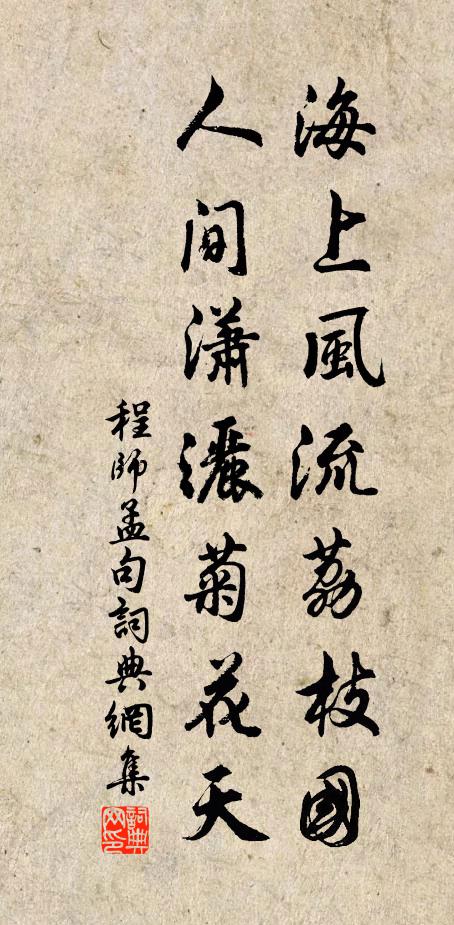 海上風流荔枝國
人間瀟灑菊花天
程師孟句詞典網集
詞典网印